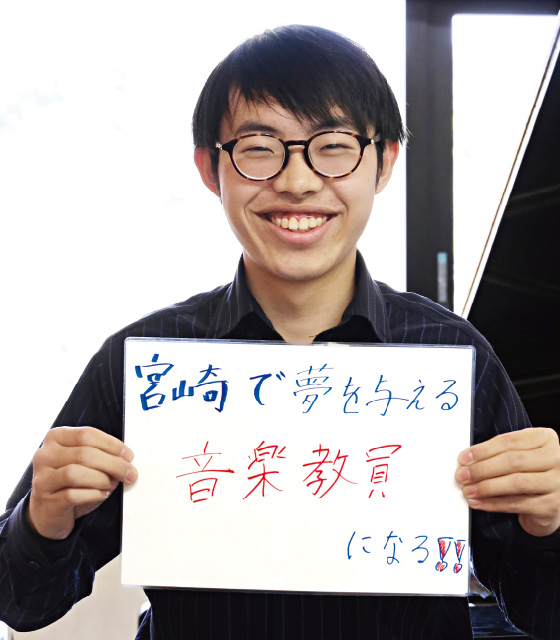 宮崎で夢を与える
音楽教員
になる!!